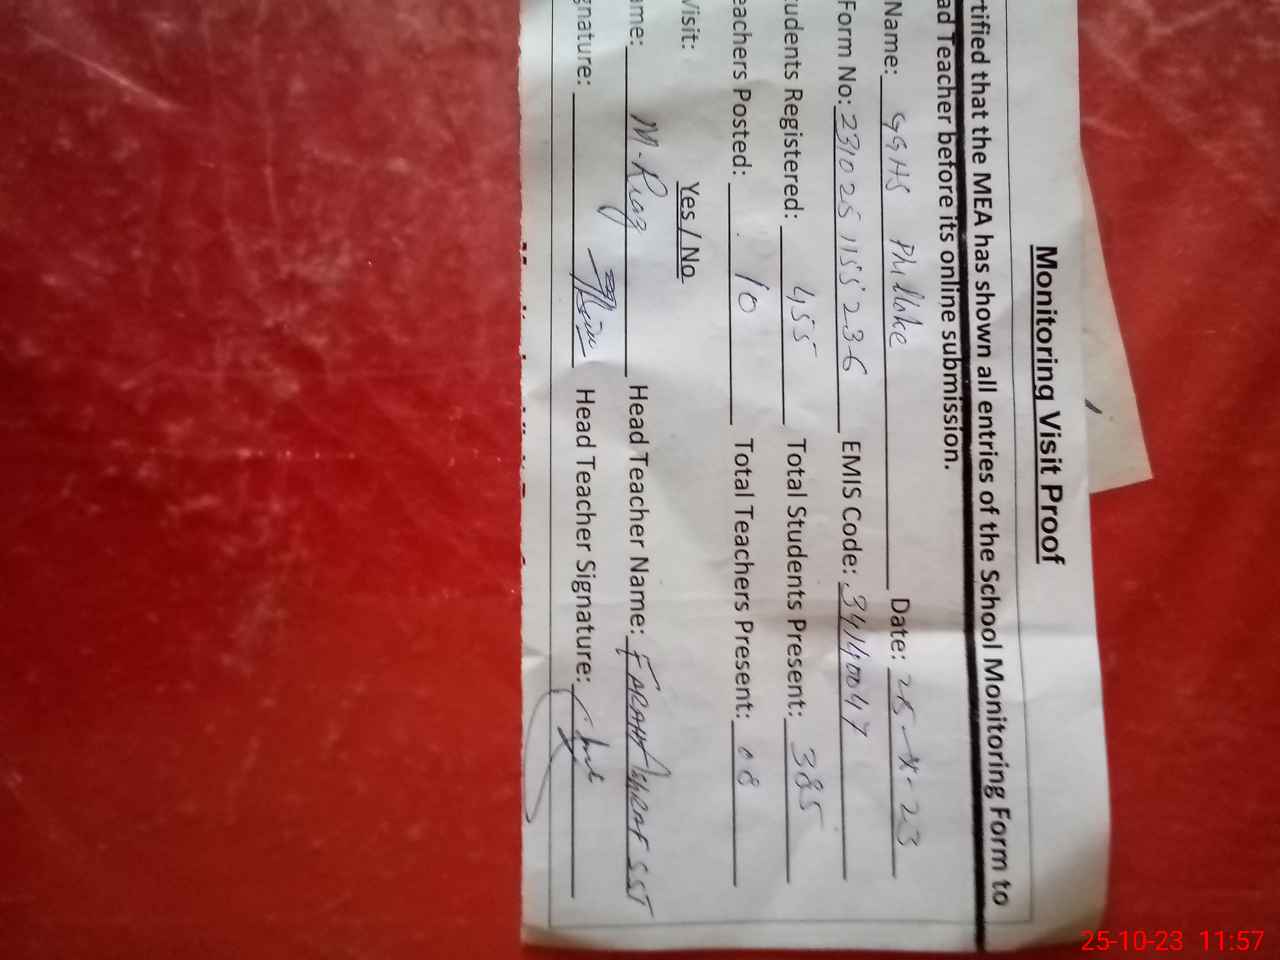 Monitoring Visit Proof
rtified that the MEA has shown all entries of the School Monitoring Form to
ad Teacher before its online submission.
Name: GGHS Philloke Date: 25-X-23
Form No: 231025 1155236 EMIS Code: 34140047
udents Registered: 455 Total Students Present: 385
eachers Posted: 10 Total Teachers Present: 08
Visit: Yes / No
ame: M. Riaz Head Teacher Name: FARAH ASHRAF SST
gnature: Head Teacher Signature:
25-10-23 11:57